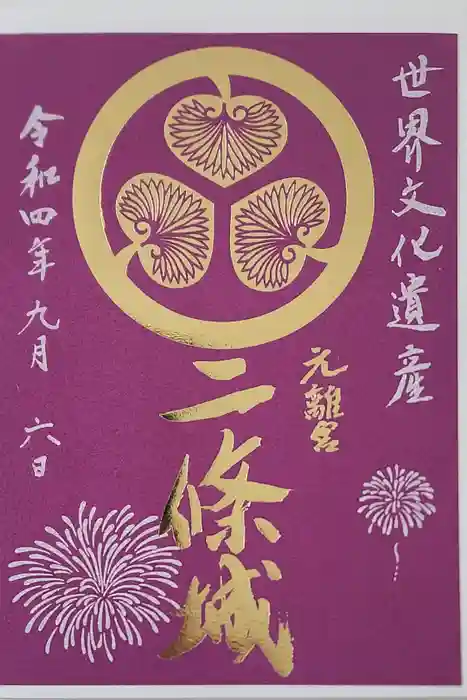 世界文化遺産
元離宮
二條城
令和四年九月六日